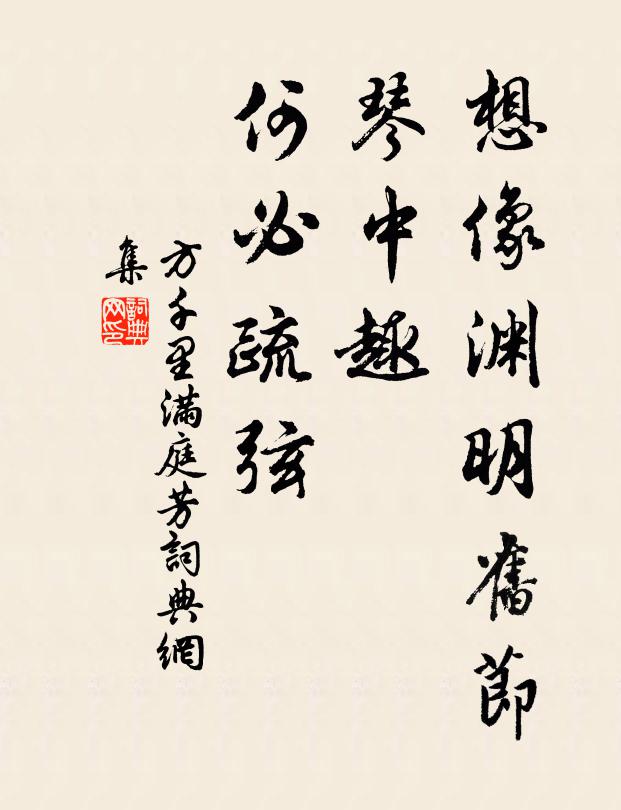 想像淵明舊節
琴中趣
何必疏弦
方千里滿庭芳詞典網
集
詞典網印